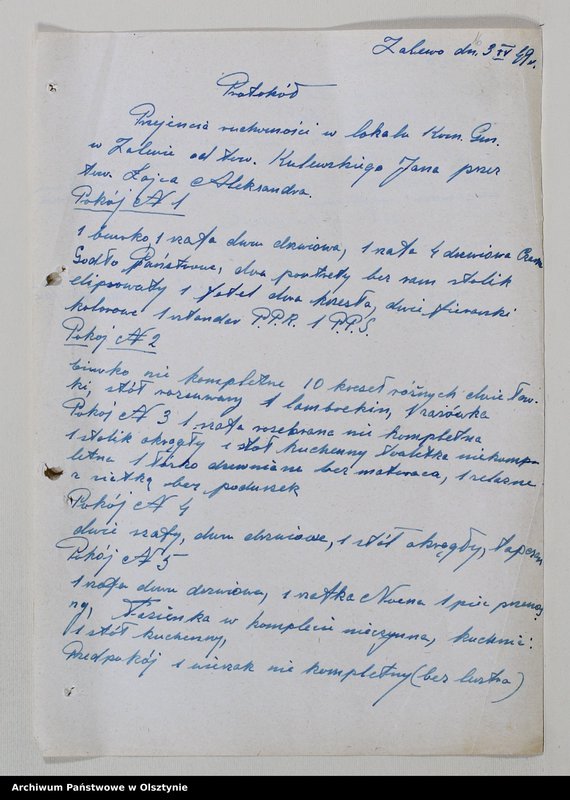 Zalewo dn. 3 IV 49 r.
Protokół
Przejęcia ruchomości w lokalu Kom. Gm.
w Zalewie od tow. Kulewskiego Jana przez
tow. Zająca Aleksandra.
Pokój N 1
1 biurko, 1 szafa dwu drzwiowa, 1 szafa 4 drzwiowa
Godło Państwowe, dwa portrety bez ram stolik
elipsowaty 1 fotel dwa krzesła, dwie firanki
kolorowe 1 sztandar P.P.R. 1 P.P.S.
Pokój N 2
biurko nie kompletne 10 krzeseł różnych dwie ław-
ki, stół rozsuwany 1 lambrekin,
Pokój N 3 1 szafa rozebrana nie kompletna
1 stolik okrągły 1 stół kuchenny toaletka niekomp-
letna 1 łóżko drewniane bez materaca, 1 żelazne
z siatką bez poduszek
Pokój N 4
dwie szafy, dwu drzwiowe, 1 stół okrągły, tapczan
Pokój N 5
1 szafa dwu drzwiowa, 1 szafka Nocna 1 piec przenoś
ny, Łazienka w komplecie nieczynna, kuchnia:
1 stół kuchenny,
Przedpokój 1 wieszak nie kompletny (bez lustra)
Archiwum Państwowe w Olsztynie